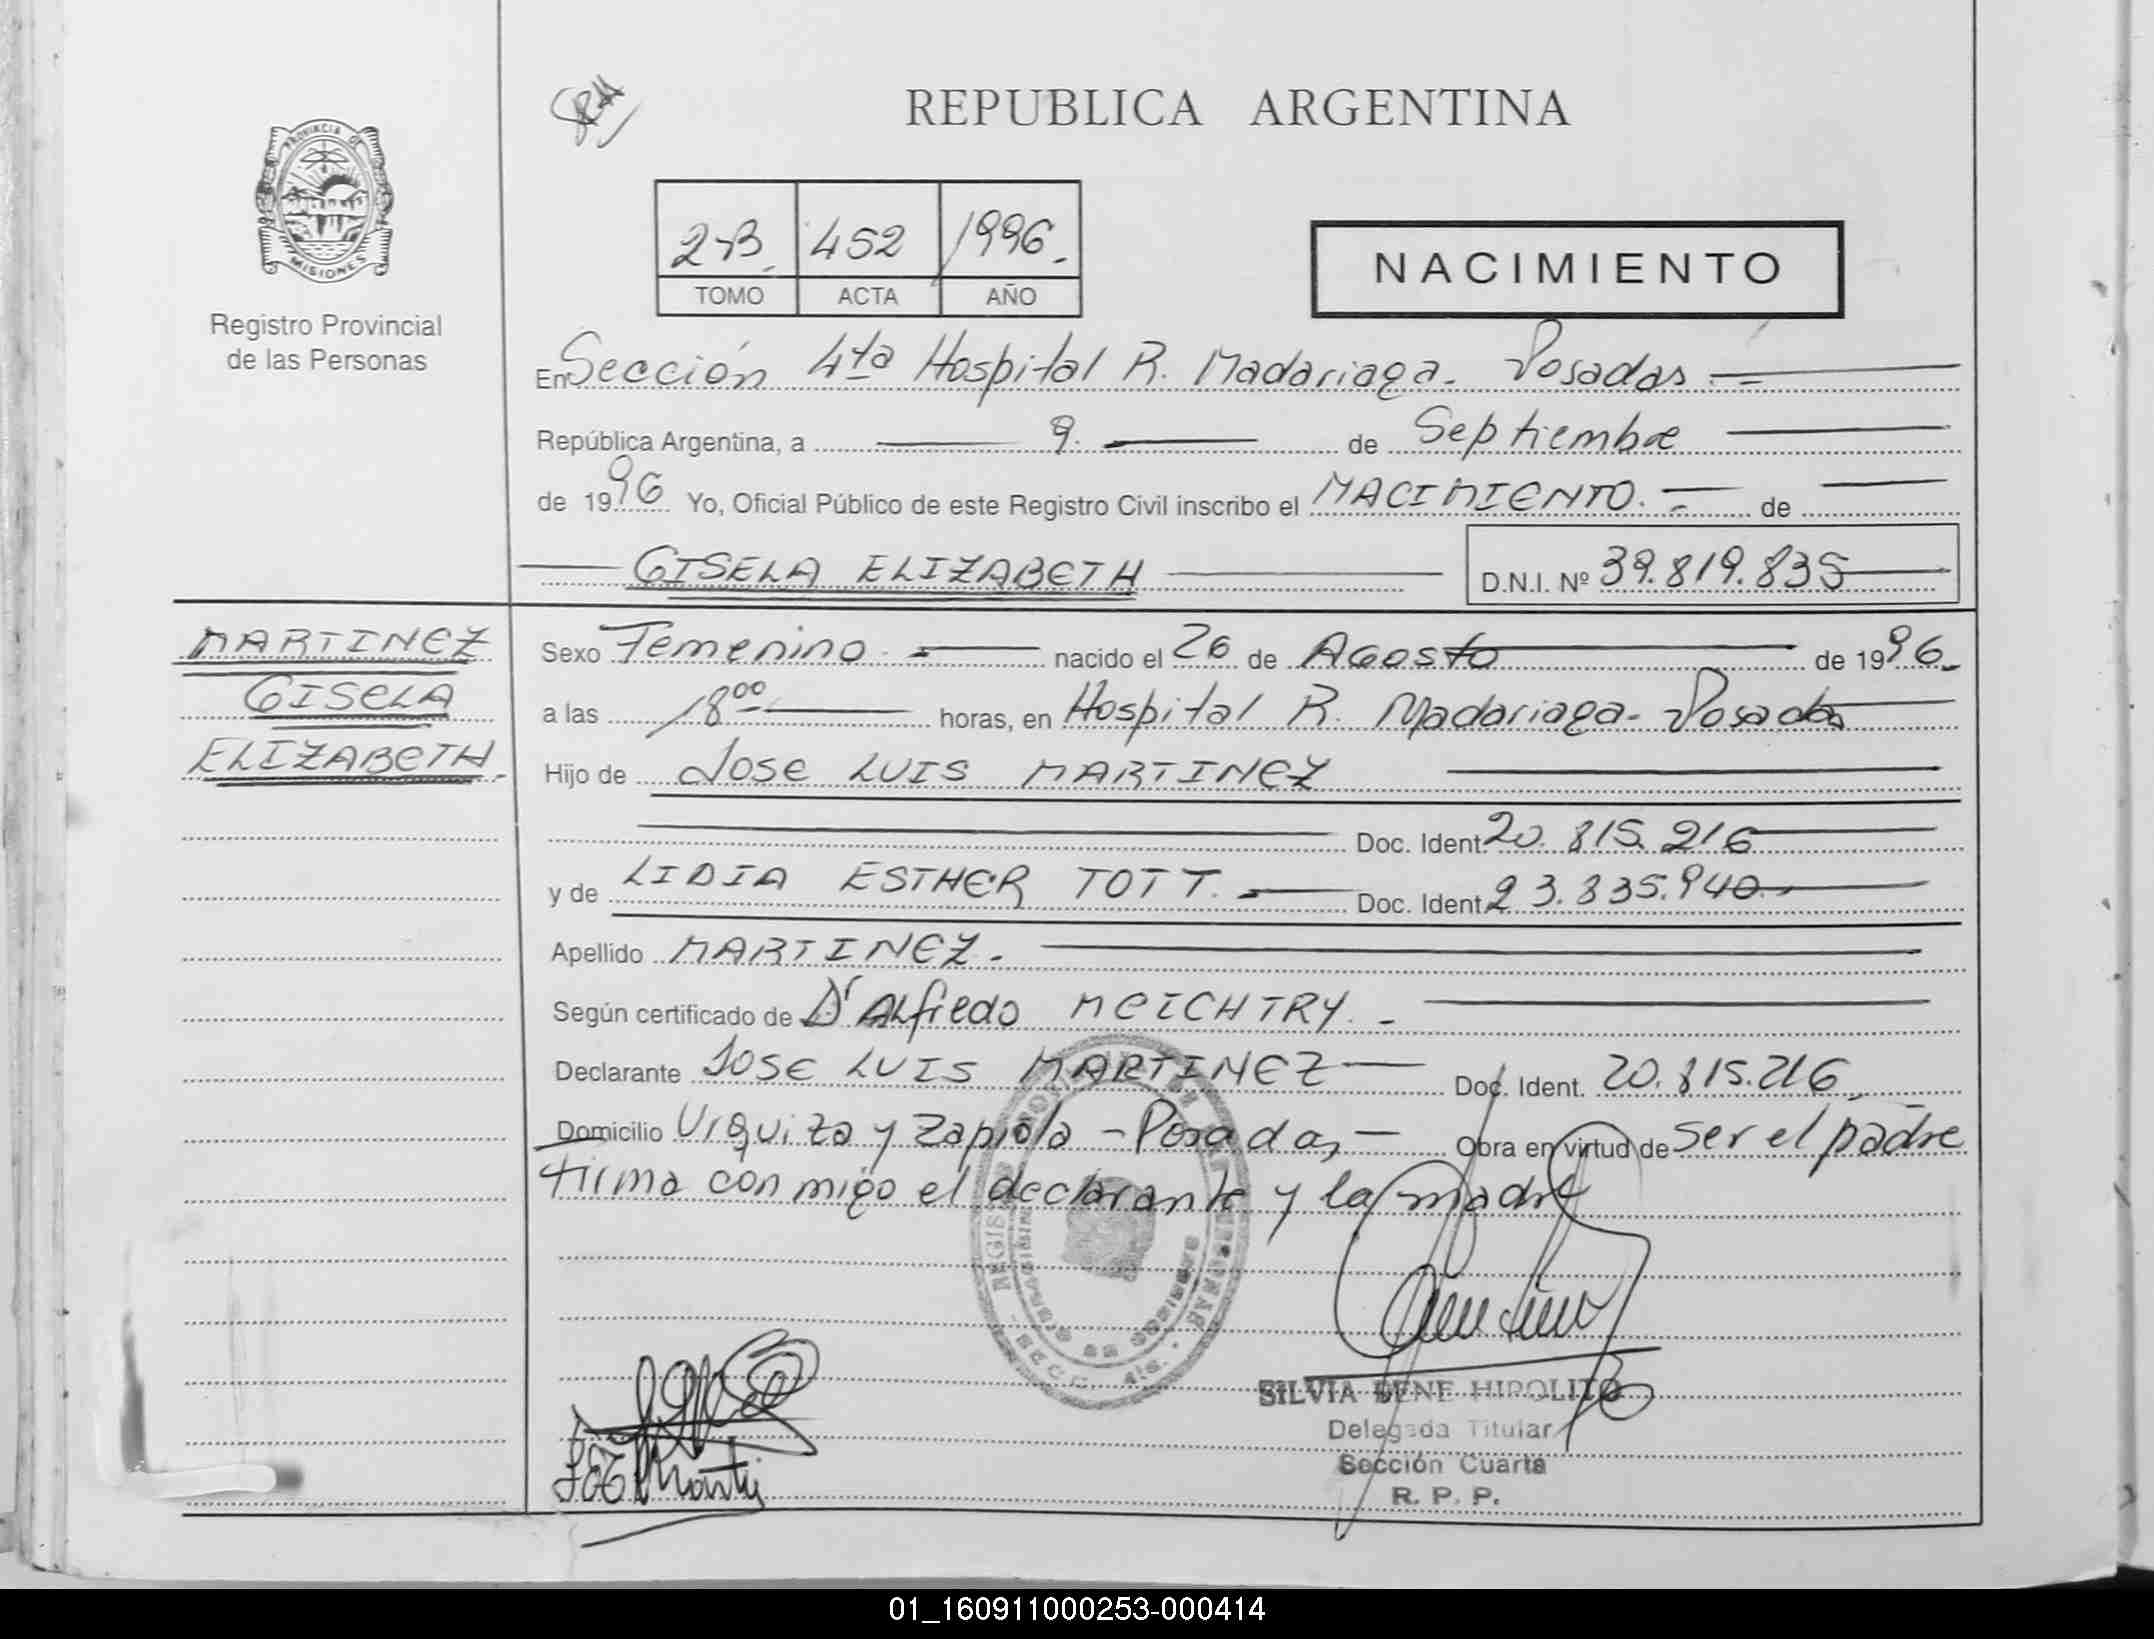 REPUBLICA ARGENTINA
PROVINCIA DE
MISIONES
Registro Provincial
de las Personas
2-B. 452 1996.
TOMO ACTA AÑO
NACIMIENTO
En Sección 4ta Hospital R. Madariaga. Posadas
República Argentina, a 9. de Septiembre
de 1996 Yo, Oficial Público de este Registro Civil inscribo el NACIMIENTO. de
GISELA ELIZABETH D.N.I. Nº 39.819.835
MARTINEZ
GISELA
ELIZABETH.
Sexo Femenino. nacido el 26 de Agosto de 1996.
a las 18 00 horas, en Hospital R. Madariaga. Posadas
Hijo de Jose LUIS MARTINEZ
Doc. Ident. 20.815.216
y de LIDIA ESTHER TOTT. Doc. Ident. 23.835.940.
Apellido MARTINEZ.
Según certificado de Dr Alfredo MEICHTRY.
Declarante JOSE LUIS MARTINEZ Doc. Ident. 20.815.216
Domicilio Urquiza y Zapiola - Posadas, Obra en virtud de ser el padre
firma con migo el declarante y la madre
SILVIA HIPOLITO
Delegada Titular
Sección Cuarta
R. P. P.
01_160911000253-000414